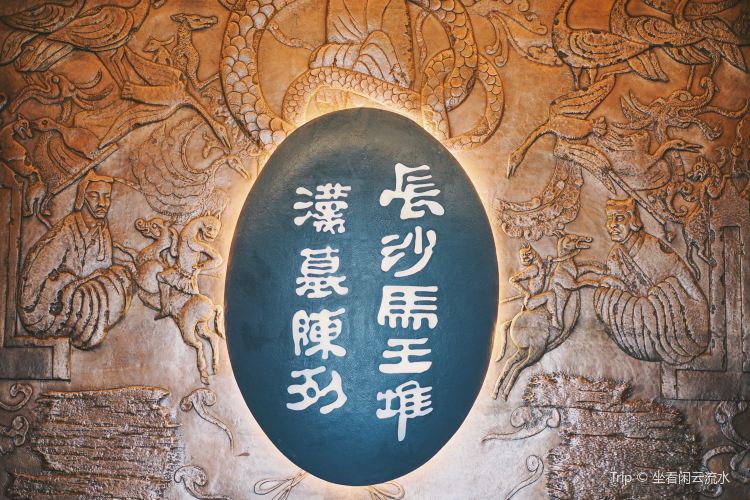 长沙马王堆
漢墓陳列
Trip © 坐看闲云流水